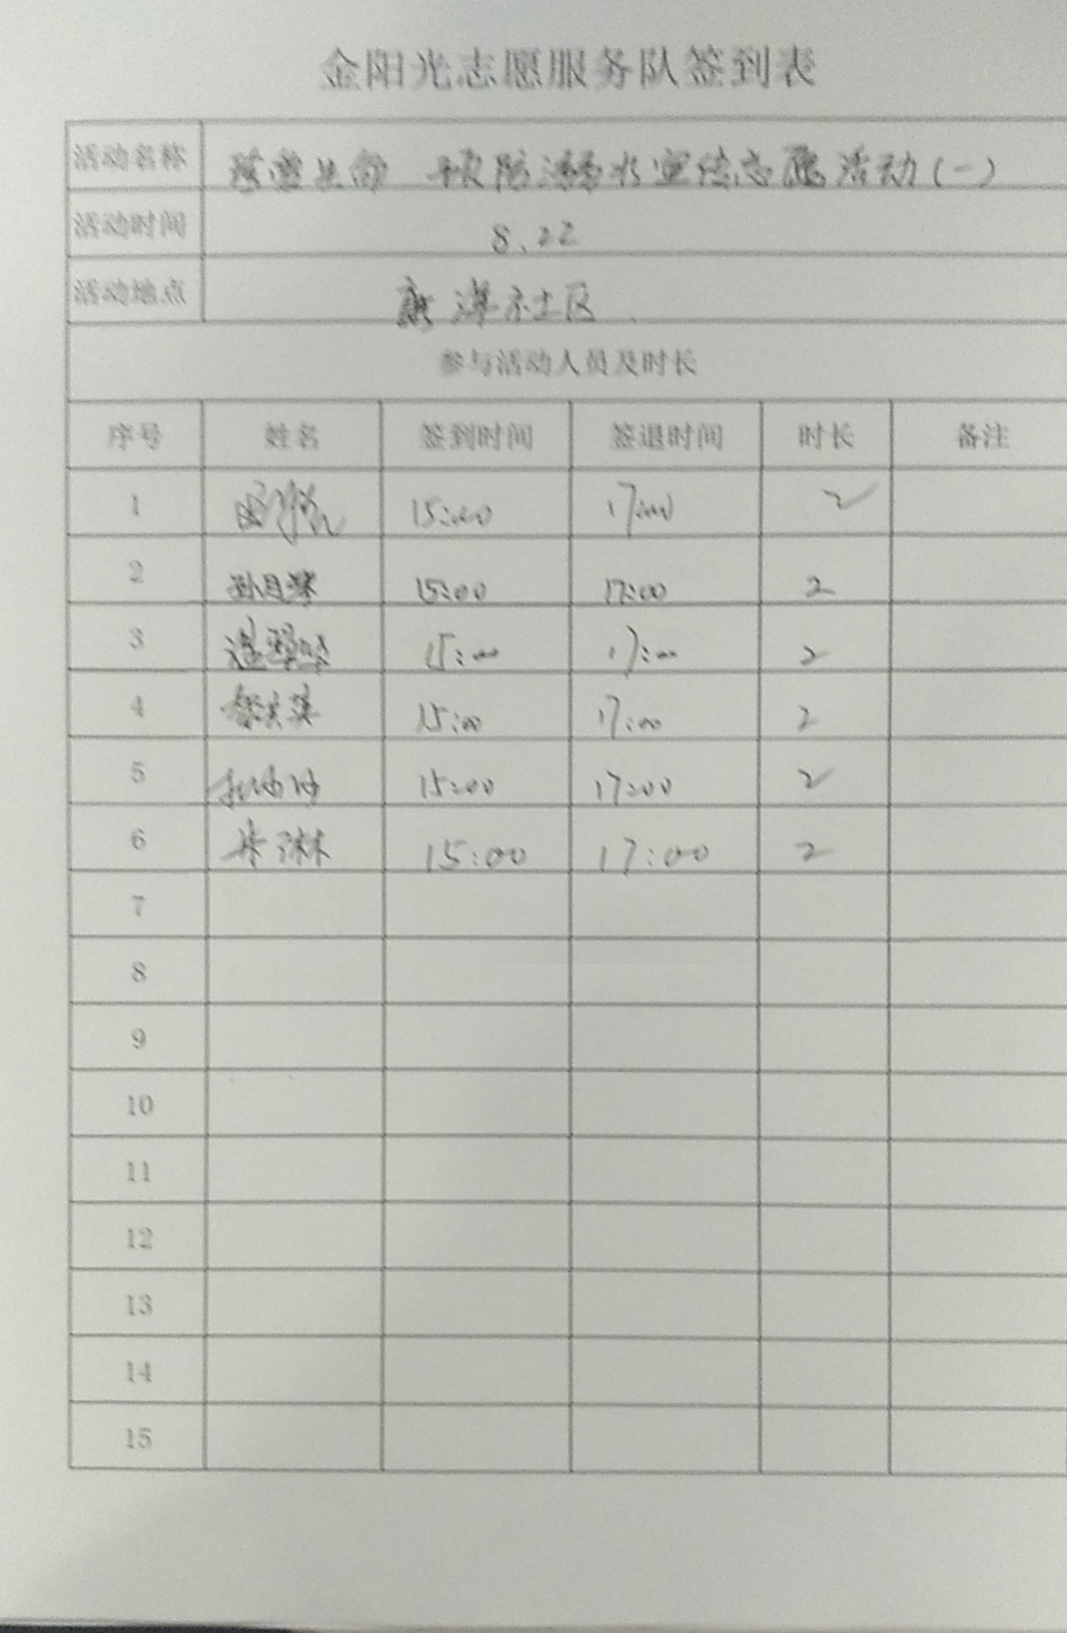 金阳光志愿服务队签到表
活动名称 珍爱生命 预防溺水宣传志愿活动(一)
活动时间 8.22
活动地点 社区
参与活动人员及时长
序号 姓名 签到时间 签退时间 时长 备注
1 15:00 17:00 2
2 15:00 17:00 2
3 15:00 17:00 2
4 15:00 17:00 2
5 15:00 17:00 2
6 15:00 17:00 2
7
8
9
10
11
12
13
14
15